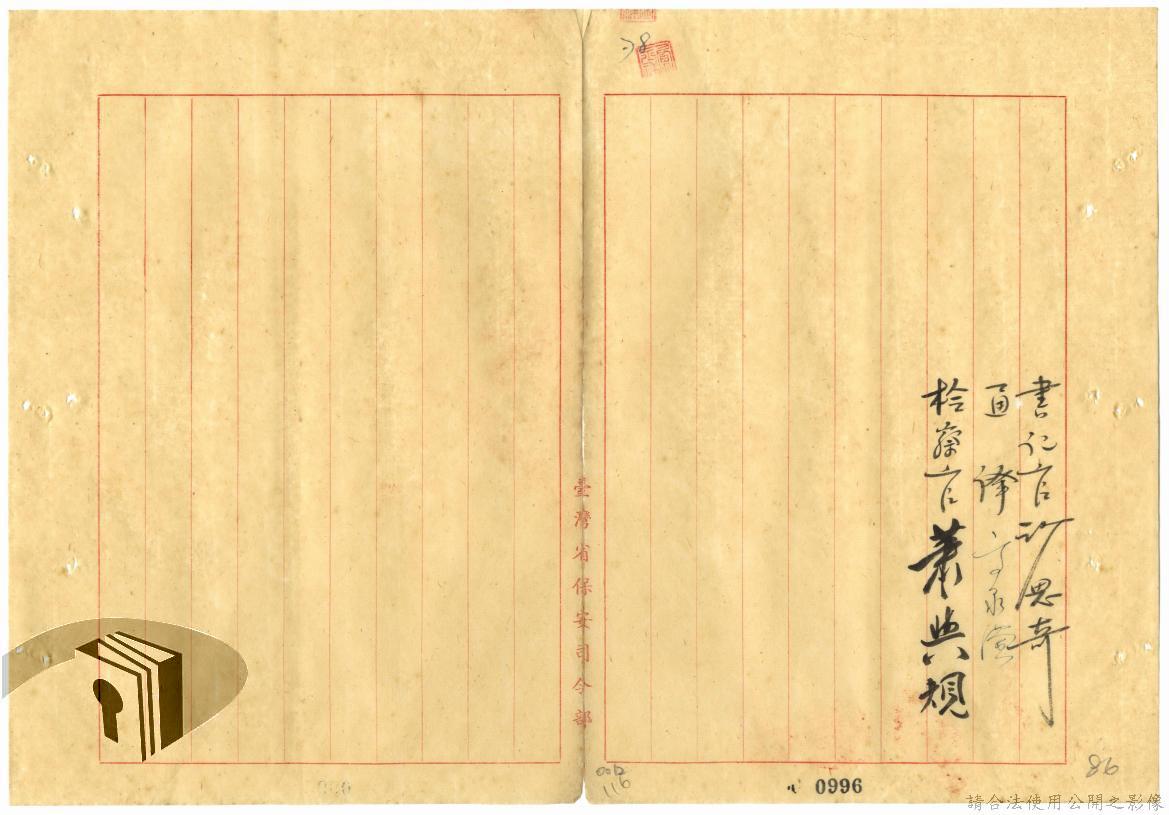 38
書記官許思奇
通譯
檢察官蕭典規
臺灣省保安司令部
0012
116
0996
86
請合法使用公開之影像